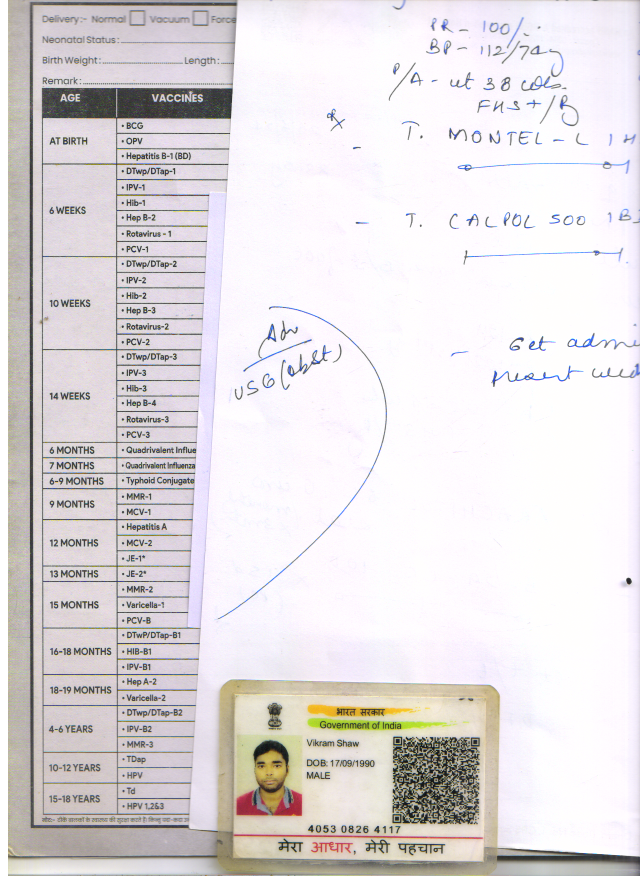 Delivery:- Normal Vacuum Force
Neonatal Status:
Birth Weight: Length:
Remark:
AGE VACCINES
AT BIRTH
• BCG
• OPV
• Hepatitis B-1 (BD)
6 WEEKS
• DTwp/DTap-1
• IPV-1
• Hib-1
• Hep B-2
• Rotavirus - 1
• PCV-1
10 WEEKS
• DTwp/DTap-2
• IPV-2
• Hib-2
• Hep B-3
• Rotavirus-2
• PCV-2
14 WEEKS
• DTwp/DTap-3
• IPV-3
• Hib-3
• Hep B-4
• Rotavirus-3
• PCV-3
6 MONTHS • Quadrivalent Influe
7 MONTHS • Quadrivalent Influenza
6-9 MONTHS • Typhoid Conjugate
9 MONTHS
• MMR-1
• MCV-1
12 MONTHS
• Hepatitis A
• MCV-2
• JE-1*
13 MONTHS • JE-2*
15 MONTHS
• MMR-2
• Varicella-1
• PCV-B
16-18 MONTHS
• DTwP/DTap-B1
• HIB-B1
• IPV-B1
18-19 MONTHS
• Hep A-2
• Varicella-2
4-6 YEARS
• DTwp/DTap-B2
• IPV-B2
• MMR-3
10-12 YEARS
• TDap
• HPV
15-18 YEARS
• Td
• HPV 1,2&3
PR - 100/
BP - 112/70
P/A - ut 38
FHS +/R
Rx
- T. MONTEL - L 1
- T. CALPOL 500 1
Adv
USG (obst)
- Get admi
present
भारत सरकार
Government of India
Vikram Shaw
DOB: 17/09/1990
MALE
4053 0826 4117
मेरा आधार, मेरी पहचान